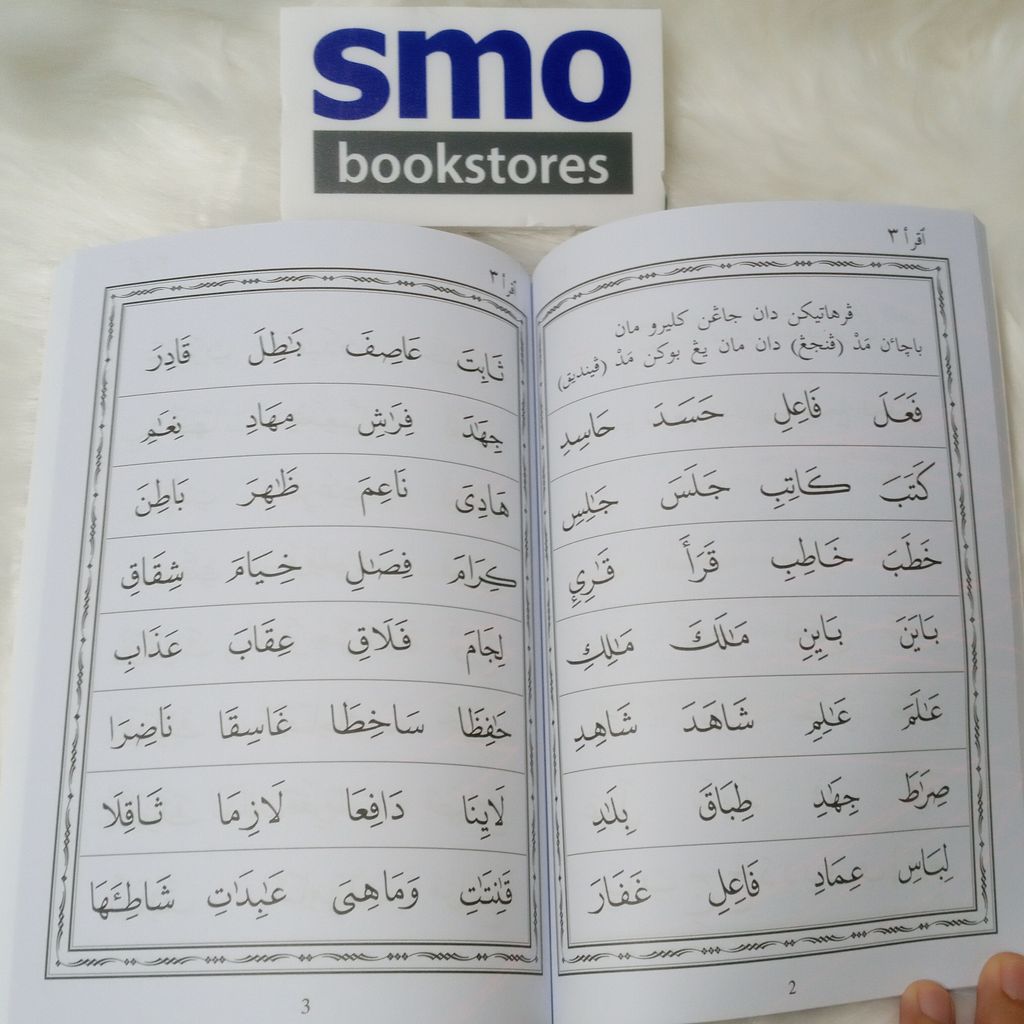 smo
bookstores
اقرأ ٣
ڤرهاتيكن دان جاڠن كليرو مان
باچاءن مَدْ (ڤنجڠ) دان مان يڠ بوكن مَدْ (ڤينديق)
فَعَلَ فَاعِلِ حَسَدَ حَاسِدِ
كَتَبَ كَاتِبِ جَلَسَ جَٰلِسِ
خَطَبَ خَاطِبِ قَرَأَ قَٰرِئِ
بَايَنَ بَايِنِ مَٰلَكَ مَٰلِكِ
عَٰلَمَ عَٰلِمِ شَاهَدَ شَاهِدِ
صِرَٰطَ جِهَٰدِ طِبَاقَ بِلَٰدِ
لِبَاسِ عِمَادِ فَاعِلِ غَفَارَ
2
اقرأ ٣
ثَابِتَ عَاصِفَ بَٰطِلَ قَادِرَ
جِهَٰدَ فِرَٰشِ مِهَادِ نِعَٰمِ
هَادِىَ نَاعِمَ ظَٰهِرَ بَاطِنَ
كِرَامَ فِصَٰلِ خِيَامَ شِقَاقِ
لِجَامَ فَلَاقِ عِقَابَ عَذَابِ
حَٰفِظَا سَاخِطَا غَاسِقَا نَاضِرَا
لَايِنَا دَافِعَا لَازِمَا ثَاقِلَا
قَٰنِتَٰتِ وَمَاهِىَ عَٰبِدَٰتِ شَاطِئَهَا
3